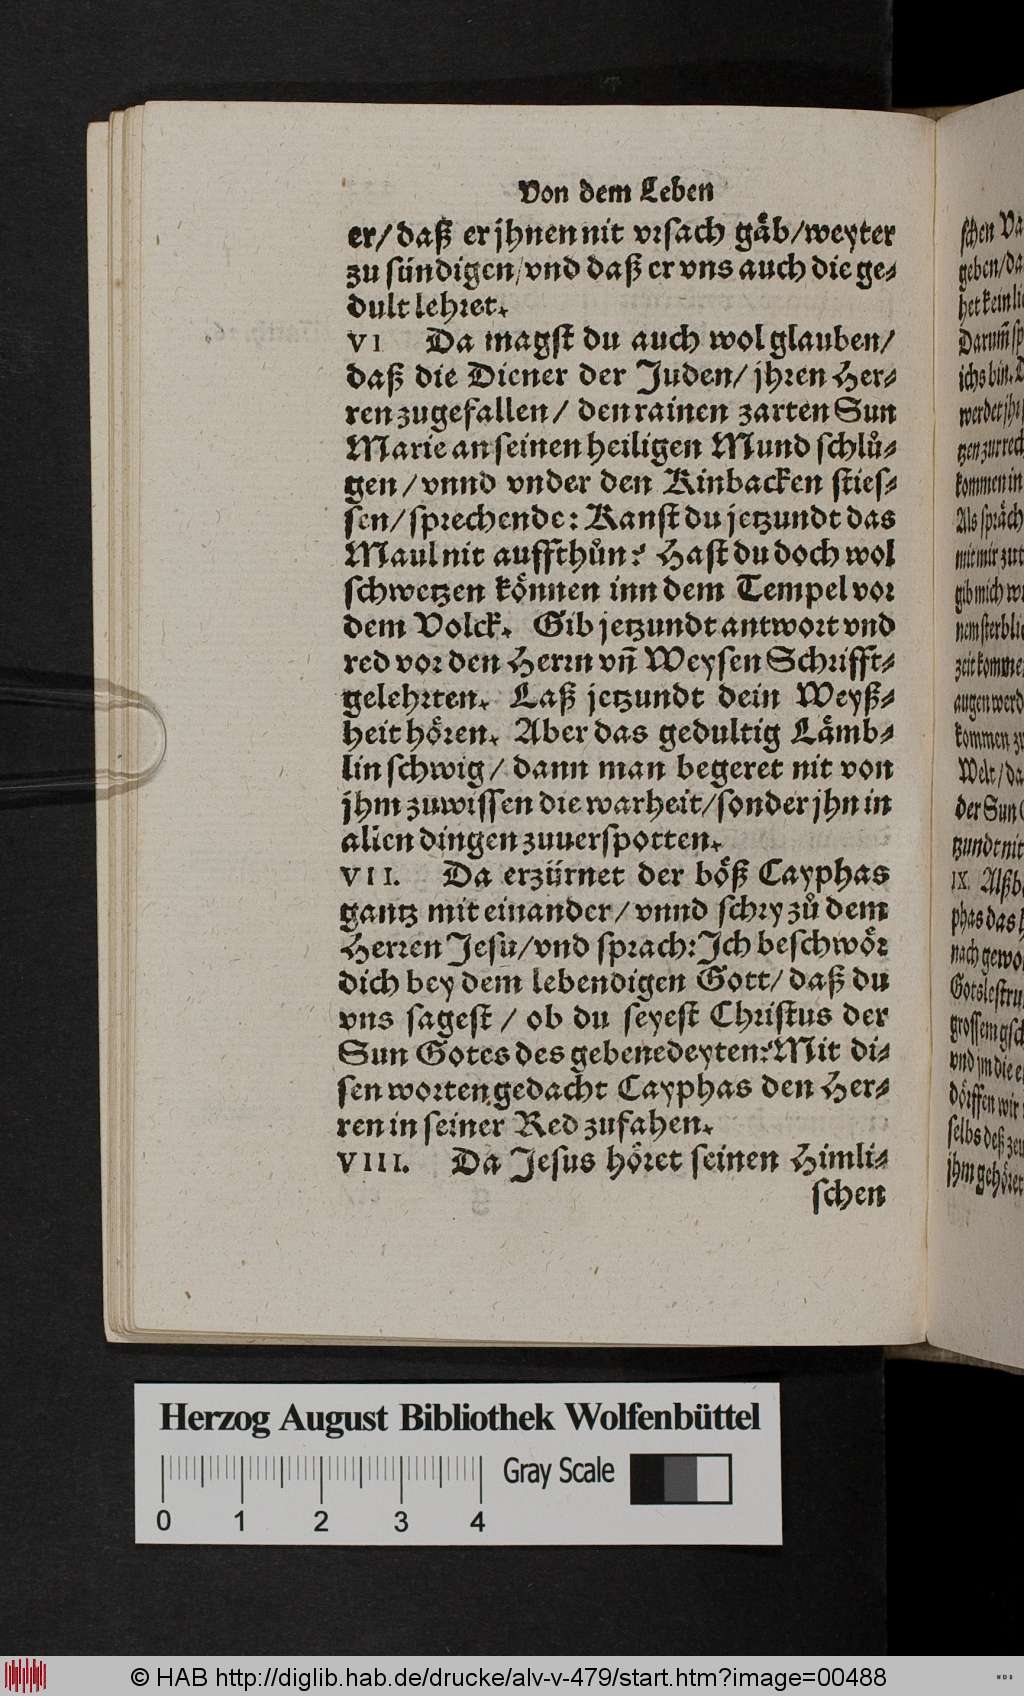 Von dem Leben
er/ daß er jhnen nit vrsach gäb/ weyter
zu sündigen/ vnd daß er vns auch die ge-
dult lehret.
VI Da magst du auch wol glauben/
daß die Diener der Juden/ jhren Her-
ren zugefallen/ den rainen zarten Sun
Marie an seinen heiligen Mund schlů-
gen/ vnnd vnder den Kinbacken sties-
sen/ sprechende: Kanst du jetzundt das
Maul nit auffthůn? Hast du doch wol
schwetzen können inn dem Tempel vor
dem Volck. Gib jetzundt antwort vnd
red vor den Herrn vñ Weysen Schrifft-
gelehrten. Laß jetzundt dein Weyß-
heit hören. Aber das gedultig Lämb-
lin schwig/ dann man begeret nit von
jhm zuwissen die warheit/ sonder jhn in
allen dingen zuuerspotten.
VII. Da erzürnet der böß Cayphas
gantz mit einander/ vnnd schry zů dem
Herren Jesu/ vnd sprach: Ich beschwör
dich bey dem lebendigen Gott/ daß du
vns sagest/ ob du seyest Christus der
Sun Gotes des gebenedeyten? Mit di-
sen worten gedacht Cayphas den Her-
ren in seiner Red zufahen.
VIII. Da Jesus höret seinen Himli-
schen
schen Va
geben/ da
het kein li
Darum̃ sp
ichs bin. D
werdet jh
tzen zur rech
kommen in
Als spräch
mit mir zu
gib mich w
nem sterblic
zeit komme
augen werd
kommen z
Welt/ da
der Sun
tzundt nit
IX. Alß b
phas das h
nach gewo
Gotslestru
grossem gsch
vnd jm die
dörffen wir
selbs deß zeu
jhm gehöret
Herzog August Bibliothek Wolfenbüttel
Gray Scale
0 1 2 3 4
© HAB http://diglib.hab.de/drucke/alv-v-479/start.htm?image=00488